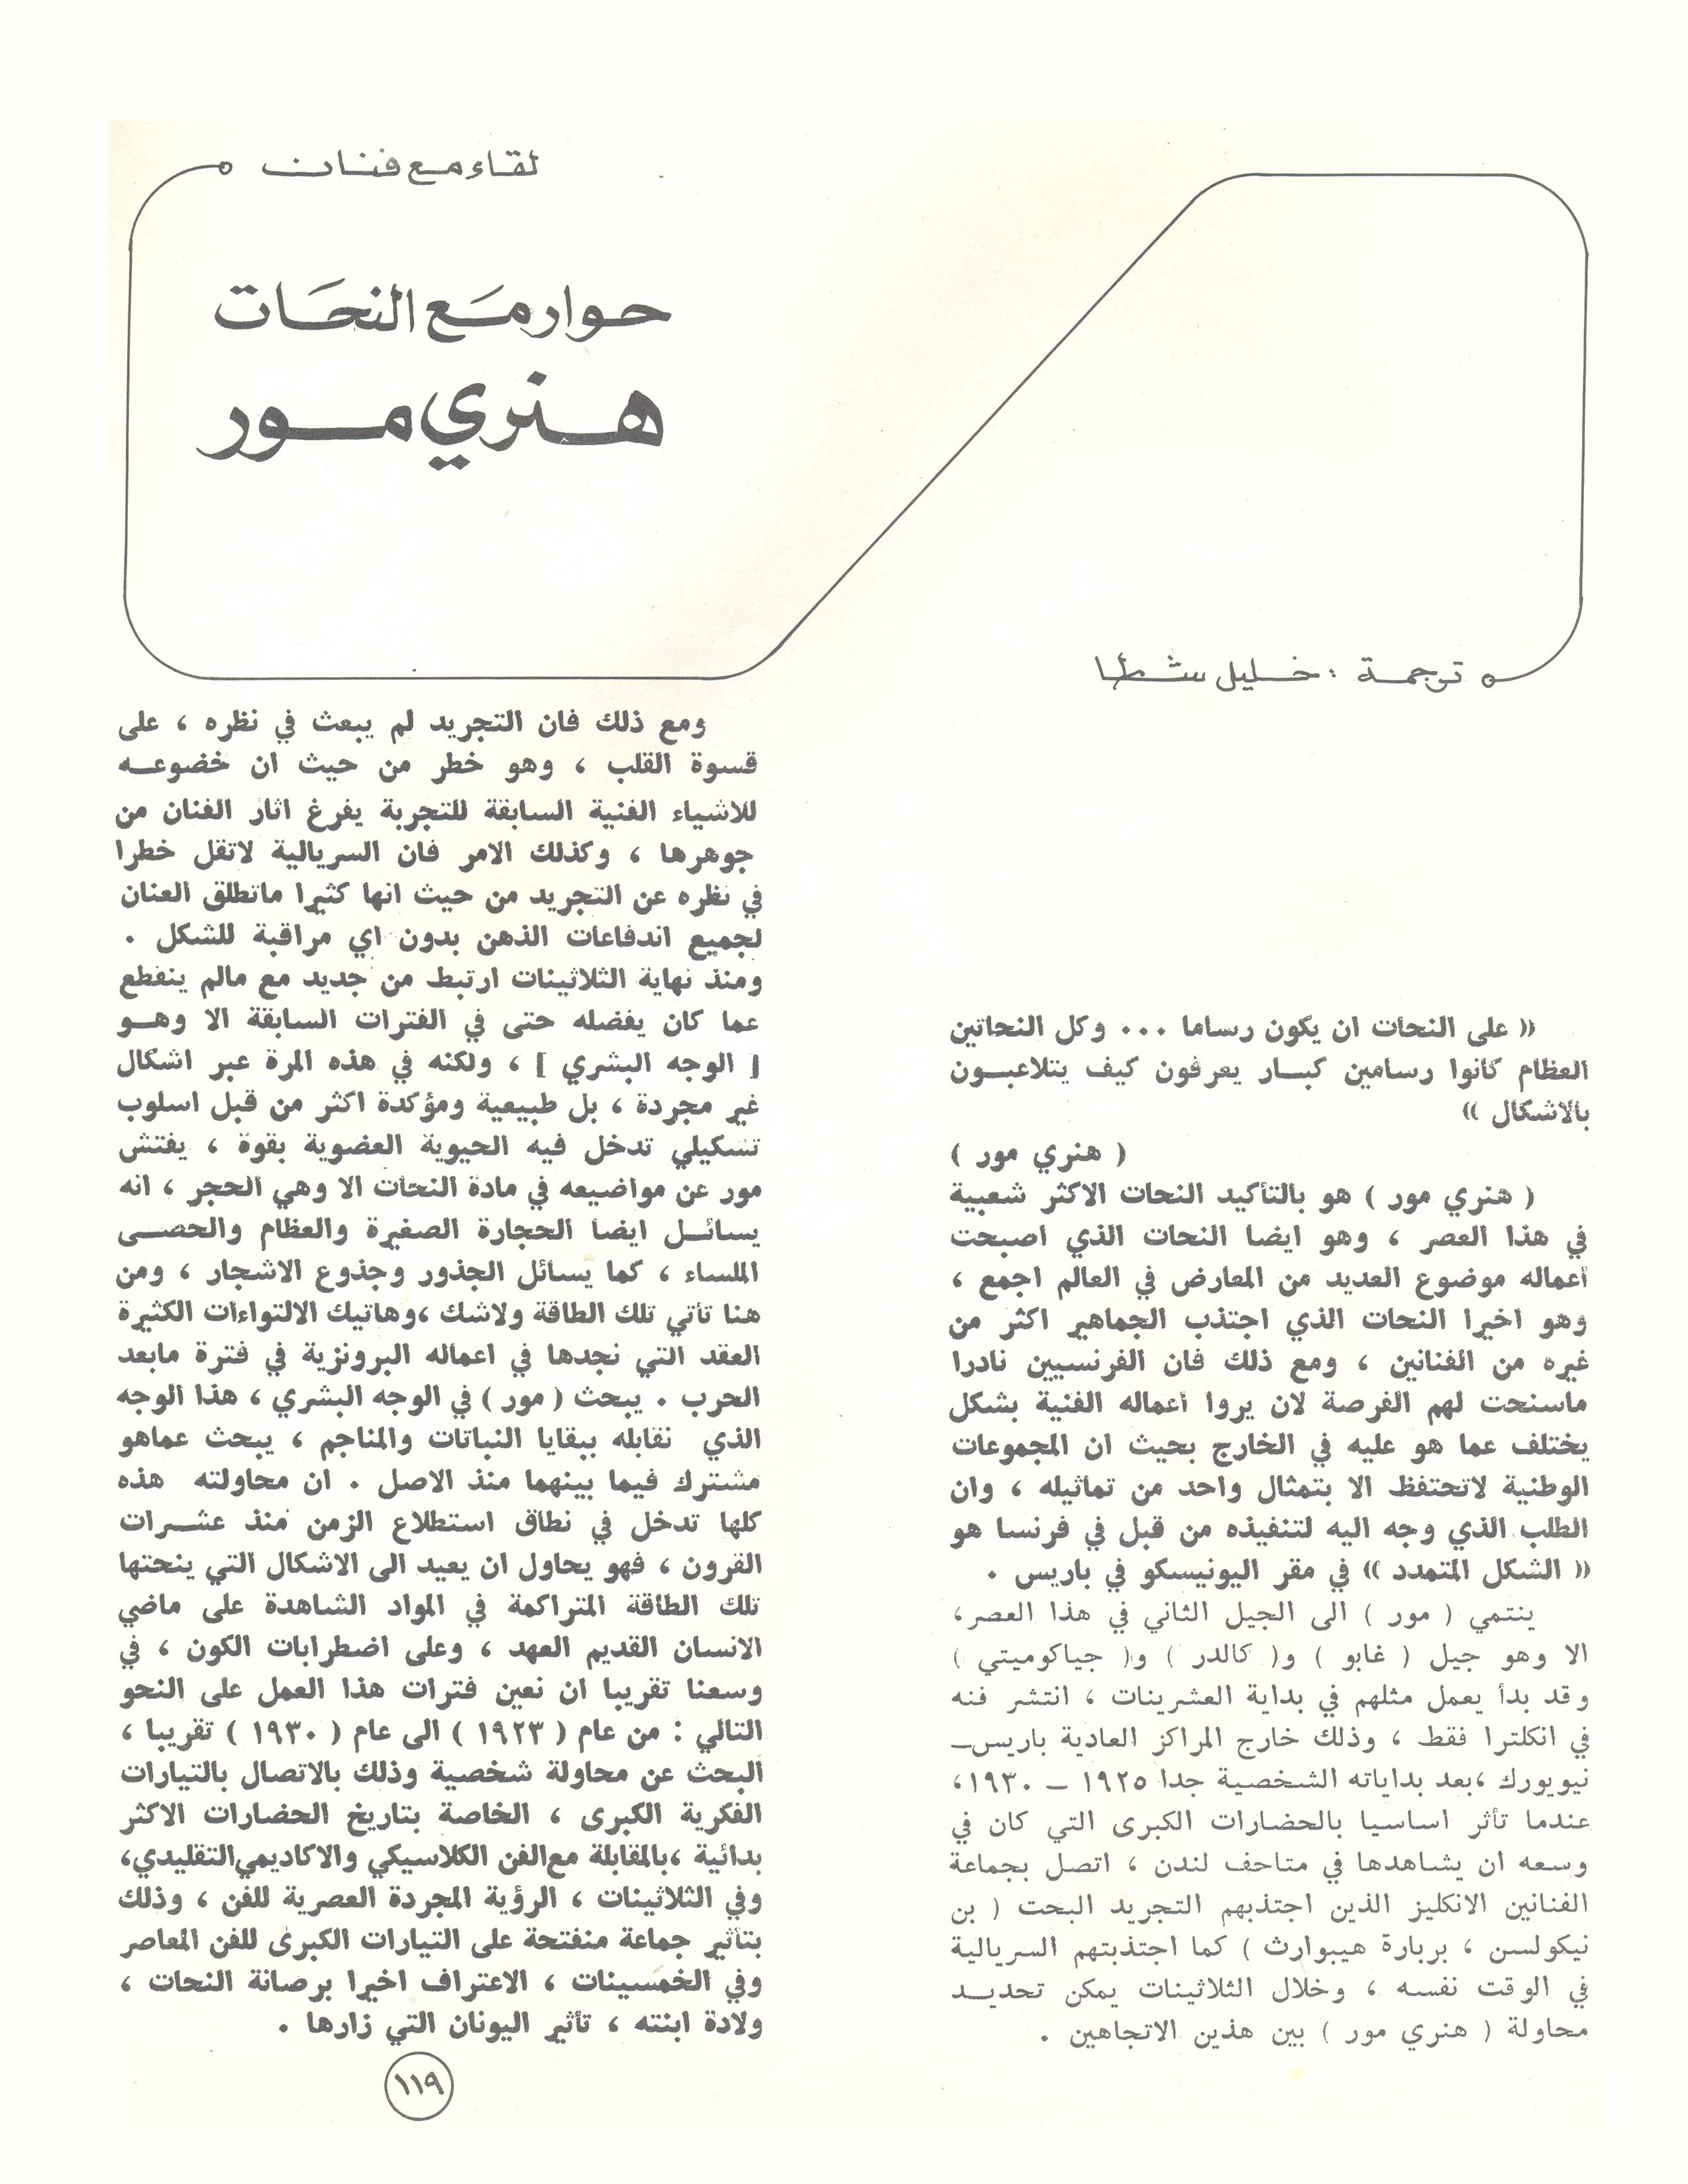 لقاء مع فنان
حوار مَع النحَات
هنري مور
ترجمة : خليل شطا
« على النحات ان يكون رساما ... وكل النحاتين
العظام كانوا رسامين كبار يعرفون كيف يتلاعبون
بالاشكال »
( هنري مور )
( هنري مور ) هو بالتأكيد النحات الاكثر شعبية
في هذا العصر ، وهو ايضا النحات الذي اصبحت
أعماله موضوع العديد من المعارض في العالم اجمع ،
وهو اخيرا النحات الذي اجتذب الجماهير اكثر من
غيره من الفنانين ، ومع ذلك فان الفرنسيين نادرا
ماسنحت لهم الفرصة لان يروا أعماله الفنية بشكل
يختلف عما هو عليه في الخارج بحيث ان المجموعات
الوطنية لاتحتفظ الا بتمثال واحد من تماثيله ، وان
الطلب الذي وجه اليه لتنفيذه من قبل في فرنسا هو
« الشكل المتمدد » في مقر اليونيسكو في باريس .
ينتمي ( مور ) الى الجيل الثاني في هذا العصر،
الا وهو جيل ( غابو ) و( كالدر ) و( جياكوميتي )
وقد بدأ يعمل مثلهم في بداية العشرينات ، انتشر فنه
في انكلترا فقط ، وذلك خارج المراكز العادية باريس_
نيويورك ،بعد بداياته الشخصية جدا ١٩٢٥ _ ١٩٣٠،
عندما تأثر اساسيا بالحضارات الكبرى التي كان في
وسعه ان يشاهدها في متاحف لندن ، اتصل بجماعة
الفنانين الانكليز الذين اجتذبهم التجريد البحت ( بن
نيكولسن ، بربارة هيبوارث ) كما اجتذبتهم السريالية
في الوقت نفسه ، وخلال الثلاثينات يمكن تحديد
محاولة ( هنري مور ) بين هذين الاتجاهين .
ومع ذلك فان التجريد لم يبعث في نظره ، على
قسوة القلب ، وهو خطر من حيث ان خضوعه
للاشياء الفنية السابقة للتجربة يفرغ اثار الفنان من
جوهرها ، وكذلك الامر فان السريالية لاتقل خطرا
في نظره عن التجريد من حيث انها كثيرا ماتطلق العنان
لجميع اندفاعات الذهن بدون اي مراقبة للشكل .
ومنذ نهاية الثلاثينات ارتبط من جديد مع مالم ينقطع
عما كان يفضله حتى في الفترات السابقة الا وهو
[ الوجه البشري ] ، ولكنه في هذه المرة عبر اشكال
غير مجردة ، بل طبيعية ومؤكدة اكثر من قبل اسلوب
تشكيلي تدخل فيه الحيوية العضوية بقوة ، يفتش
مور عن مواضيعه في مادة النحات الا وهي الحجر ، انه
يسائل ايضا الحجارة الصغيرة والعظام والحصى
الملساء ، كما يسائل الجذور وجذوع الاشجار ، ومن
هنا تأتي تلك الطاقة ولاشك ،وهاتيك الالتواءات الكثيرة
العقد التي نجدها في اعماله البرونزية في فترة مابعد
الحرب . يبحث ( مور ) في الوجه البشري ، هذا الوجه
الذي نقابله ببقايا النباتات والمناجم ، يبحث عماهو
مشترك فيما بينهما منذ الاصل . ان محاولته هذه
كلها تدخل في نطاق استطلاع الزمن منذ عشرات
القرون ، فهو يحاول ان يعيد الى الاشكال التي ينحتها
تلك الطاقة المتراكمة في المواد الشاهدة على ماضي
الانسان القديم العهد ، وعلى اضطرابات الكون ، في
وسعنا تقريبا ان نعين فترات هذا العمل على النحو
التالي : من عام ( ١٩٢٣ ) الى عام ( ١٩٣٠ ) تقريبا ،
البحث عن محاولة شخصية وذلك بالاتصال بالتيارات
الفكرية الكبرى ، الخاصة بتاريخ الحضارات الاكثر
بدائية ،بالمقابلة مع الفن الكلاسيكي والاكاديمي التقليدي،
وفي الثلاثينات ، الرؤية المجردة العصرية للفن ، وذلك
بتأثير جماعة منفتحة على التيارات الكبرى للفن المعاصر
وفي الخمسينات ، الاعتراف اخيرا برصانة النحات ،
ولادة ابنته ، تأثير اليونان التي زارها .
١١٩